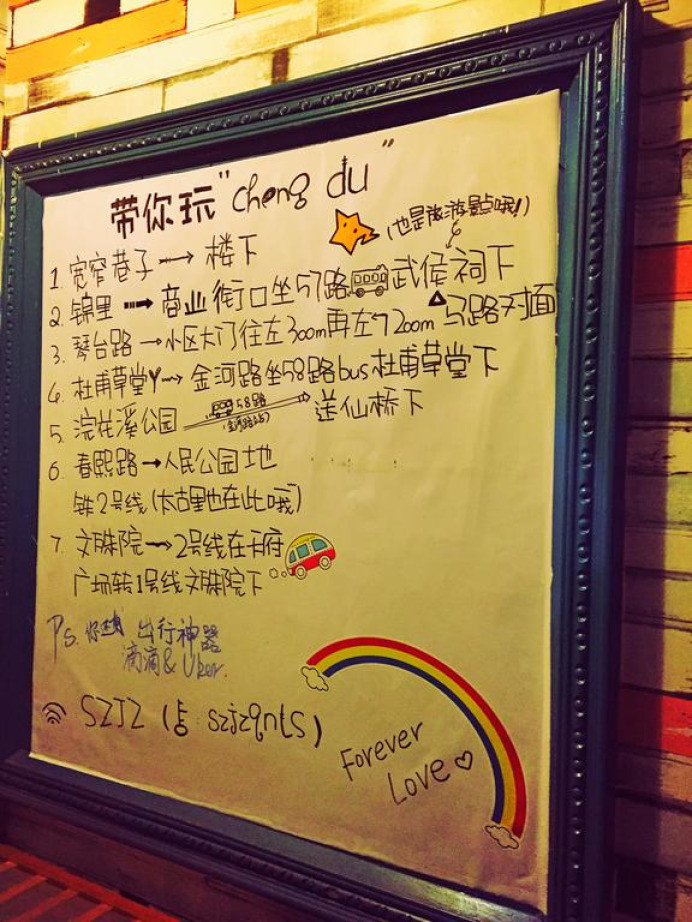 带你玩"cheng du"
(也是旅游景点哦!)
1. 宽窄巷子→楼下
2. 锦里→商业街口坐57路武侯祠下
3. 琴台路→小区大门往左300m再左7200m马路对面
4. 杜甫草堂→金河路坐58路bus杜甫草堂下
5. 浣花溪公园 58路 送仙桥下
6. 春熙路→人民公园地
铁2号线(太古里也在此哦)
7. 文殊院→2号线在天府
广场转1号线文殊院下
Ps. 出行神器
滴滴&Uber.
SZJZ ( : szjzqnts)
Forever
Love